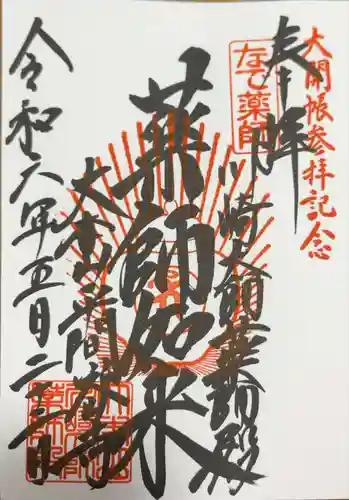 大開帳参拝記念
奉拝
なで薬師
川崎大師薬師殿
薬師如来
大本山平間寺
令和六年五月二十二日